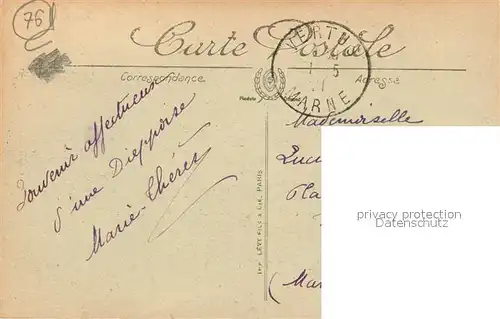 76
Carte Postale
Correspondance
Adresse
VERTUS
1 - 5
MARNE
Souvenir affectueux
d'une Dieppoise
Marie-Thérèse
Mademoiselle
(Mar
IMP. LÉVY FILS & CIE, PARIS
privacy protection
Datenschutz